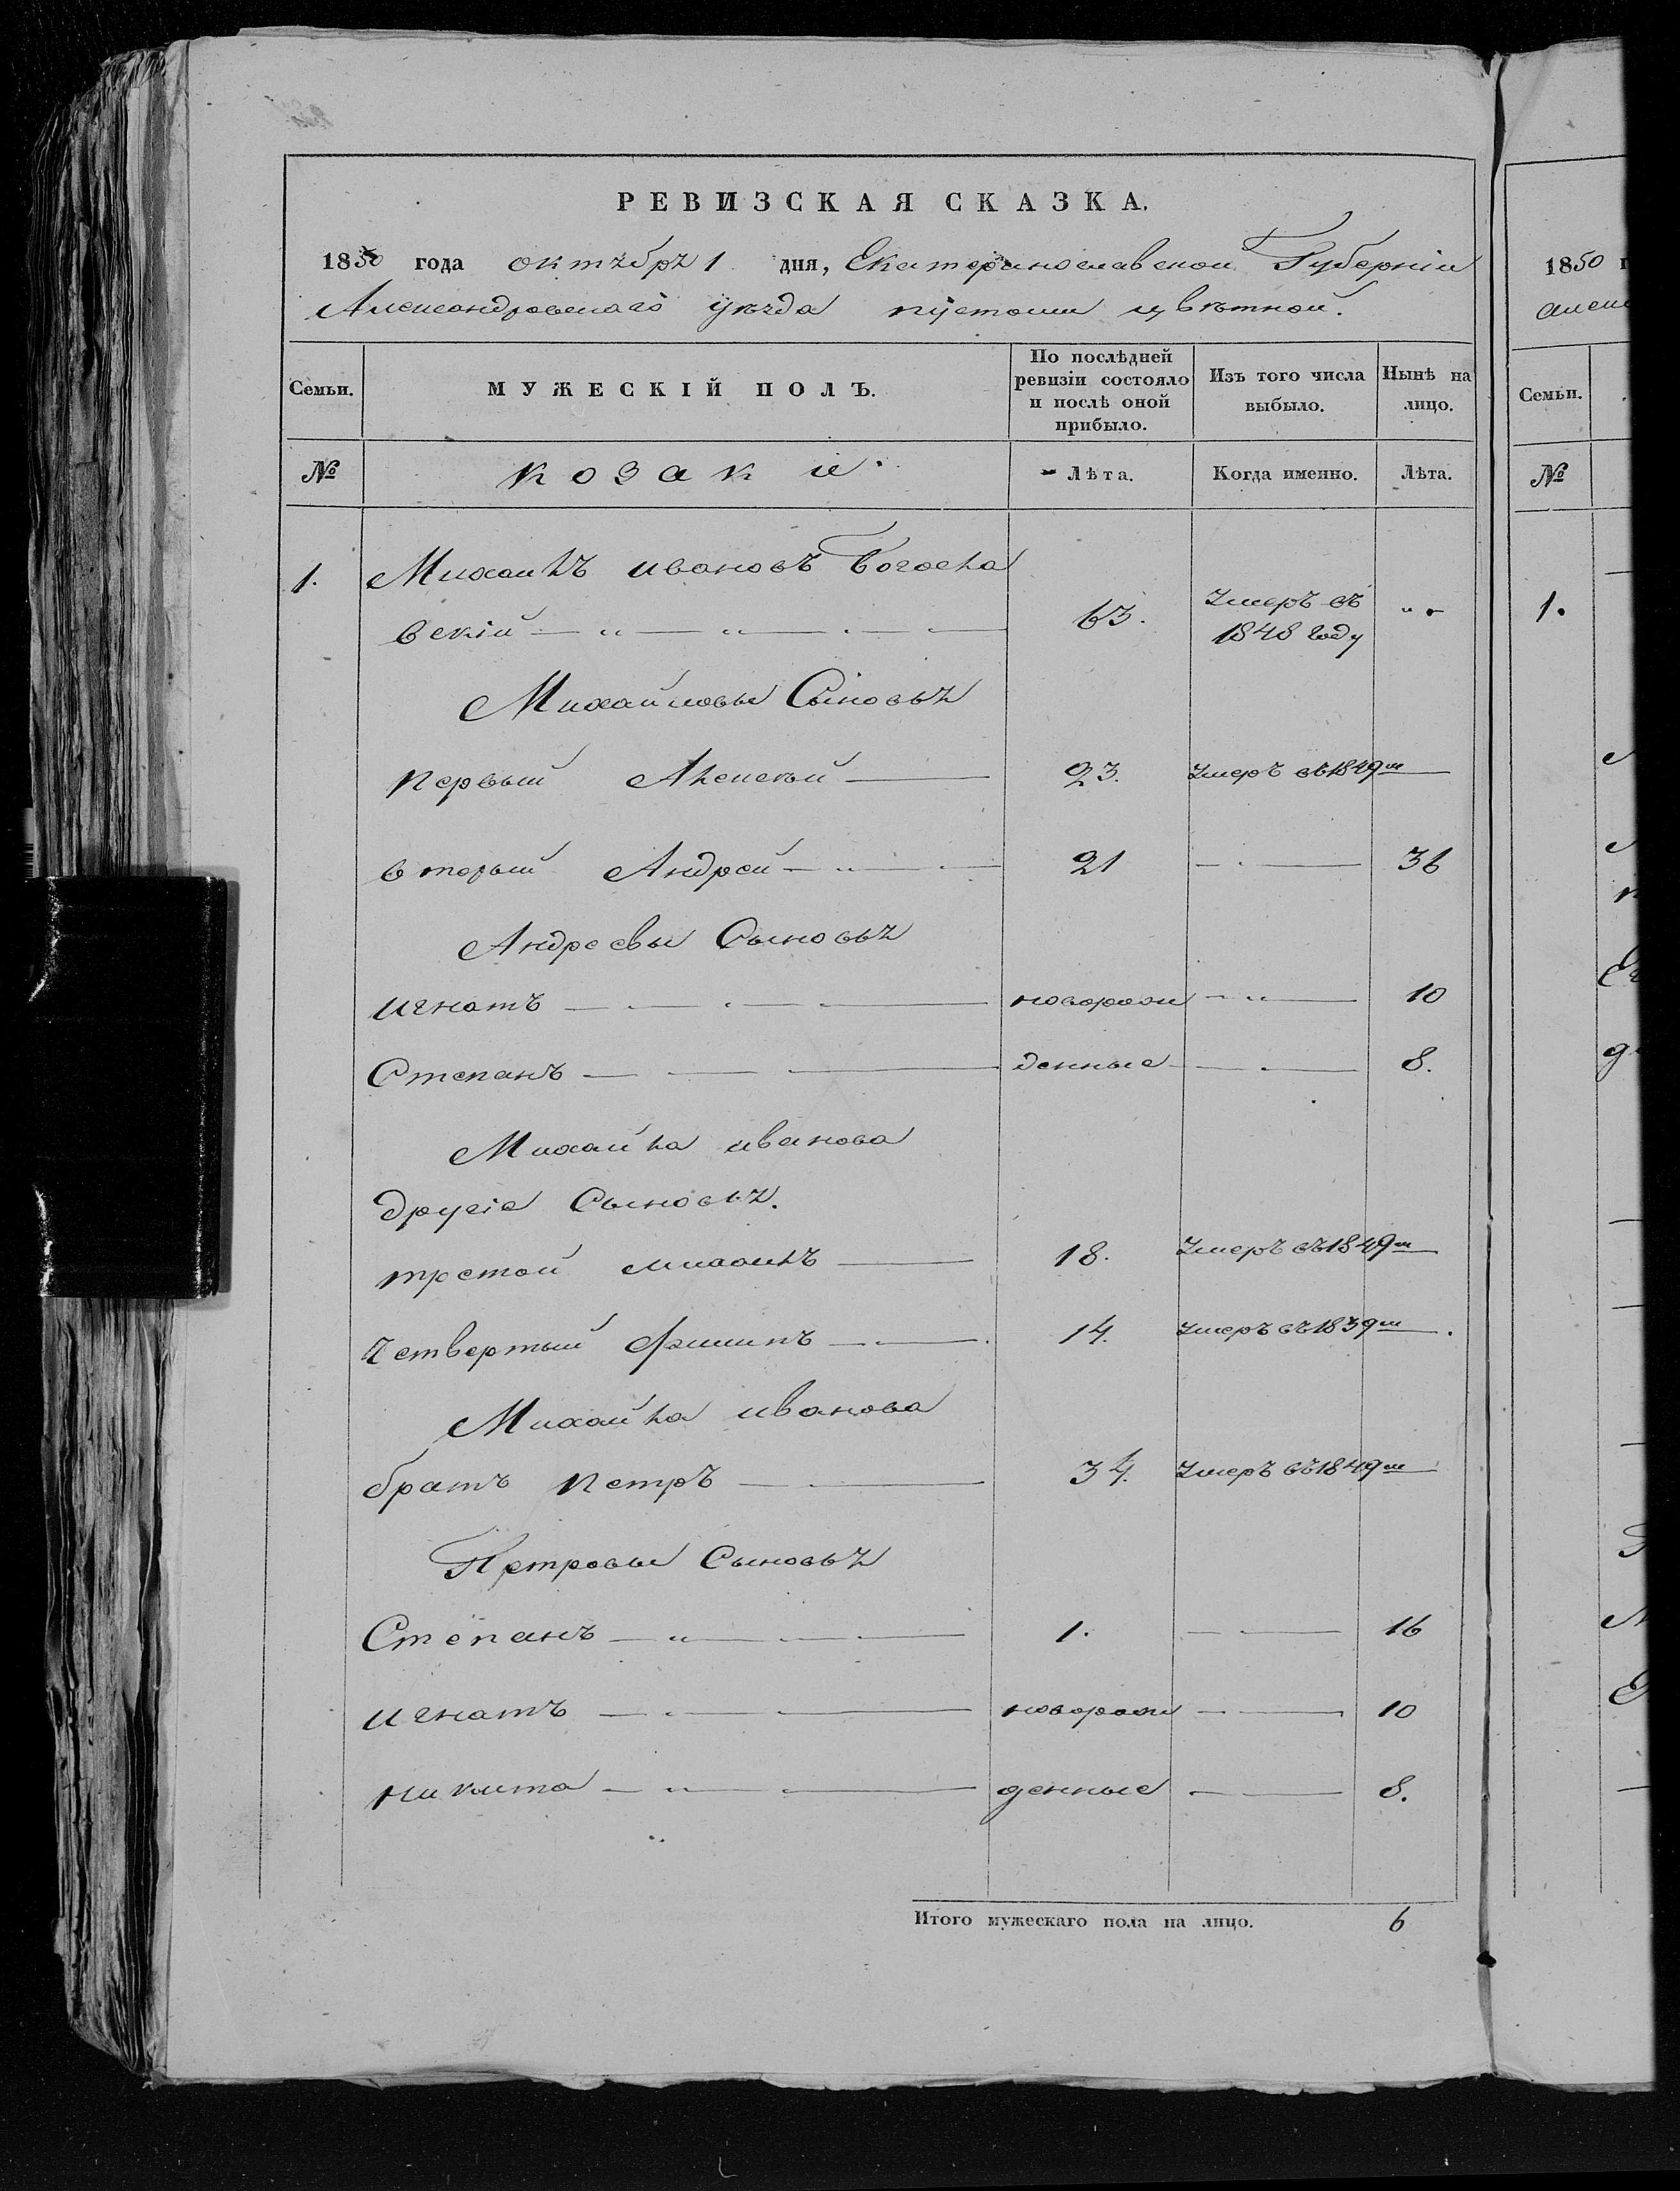 РЕВИЗСКАЯ СКАЗКА.
1850 года октября 1 дня, Екатеринославской Губерніи
Александровскаго уѣзда пустоши цвѣтной.
Семьи. МУЖЕСКІЙ ПОЛЪ. По послѣдней ревизіи состояло и послѣ оной прибыло. Изъ того числа выбыло. Нынѣ на лицо.
№ козаки. Лѣта. Когда именно. Лѣта.
1. Михаилъ ивановъ Богосла
вскій 63. Умеръ въ 1848 году
Михайловы Сыновья
первый Алексѣй 23. Умеръ въ 1849 м
вторый Андрей 21 36
Андреевы Сыновья
игнатъ новорож 10
Степанъ денные 8.
Михайла иванова
другіе Сыновья.
третой михаилъ 18. Умеръ въ 1849 м
Четвертый Филипъ 14. Умеръ въ 1839 м
Михайла иванова
братъ петръ 34. Умеръ въ 1849 м
Петровы Сыновья
Степанъ 1. 16
игнатъ новорож 10
никита денные 8.
Итого мужескаго пола на лицо. 6
1850
Семьи.
№
1.